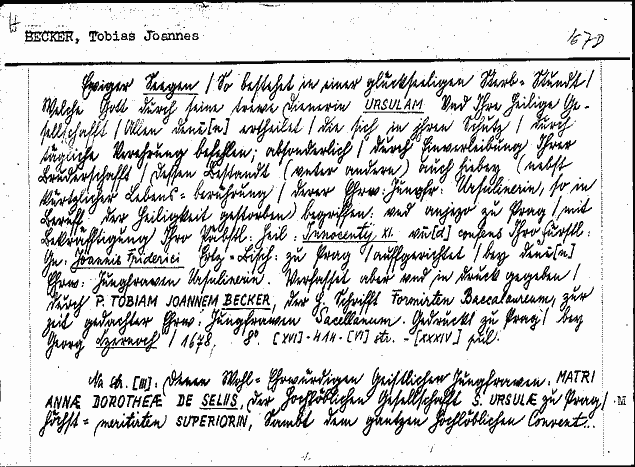 H
BECKER, Tobias Joannes
167D
Ewiger Seegen / So bestehet in einer glückseeligen Sterb-Stundt /
Welche Gott durch seine trewe Dienerin URSULAM Vnd Ihre Heilige Ge-
sellschafft / Allen denē[n] ertheilet / die sich in ihren Schutz / durch
tägliche Verehrung befehlen; absonderlich / durch Einverleibung Ihrer
Bruderschafft / dessen Bestandt (vnter andern) auch hiebey (nebst
kürtzlicher Lebens=berührung / derer Ehrw: Jungfr: Ursulinerin, so in
Beruff der Heiligkeit gestorben begriffen: vnd anjezo zu Prag / mit
Bekräfftigung Ihro Päbstl: Heil: Innocentij XI. vn̄[d] Ihro Fürstl:
Gn: Joannis Friderici Ertz=Bisch: zu Prag / auffgerichtet / bey denē[n]
Ehrw: Jungfrawen Ursulinerin. Verfasset aber vnd in druck gegeben /
durch P. TOBIAM JOANNEM BECKER, der H. Schrifft Formatum Baccalaureum, zur
zeit gedachter Ehrw: Jungfrawen Sacellanum. Gedruckt zu Prag / bey
Georg Czernoch / 1678. 8°. [XVI]-414-[VI] str. -[XXXIV]
Na [III]: Denen Wohl=Ehrwürdigen Geistlichen Jungfrawen. MATRI
ANNÆ DOROTHEÆ DE SELIIS, der Hochlöblichen Gesellschafft S. URSULÆ zu Prag / M
höchst=meritirten SUPERIORIN, Sambt dem gantzen Hochlöblichen Convent...